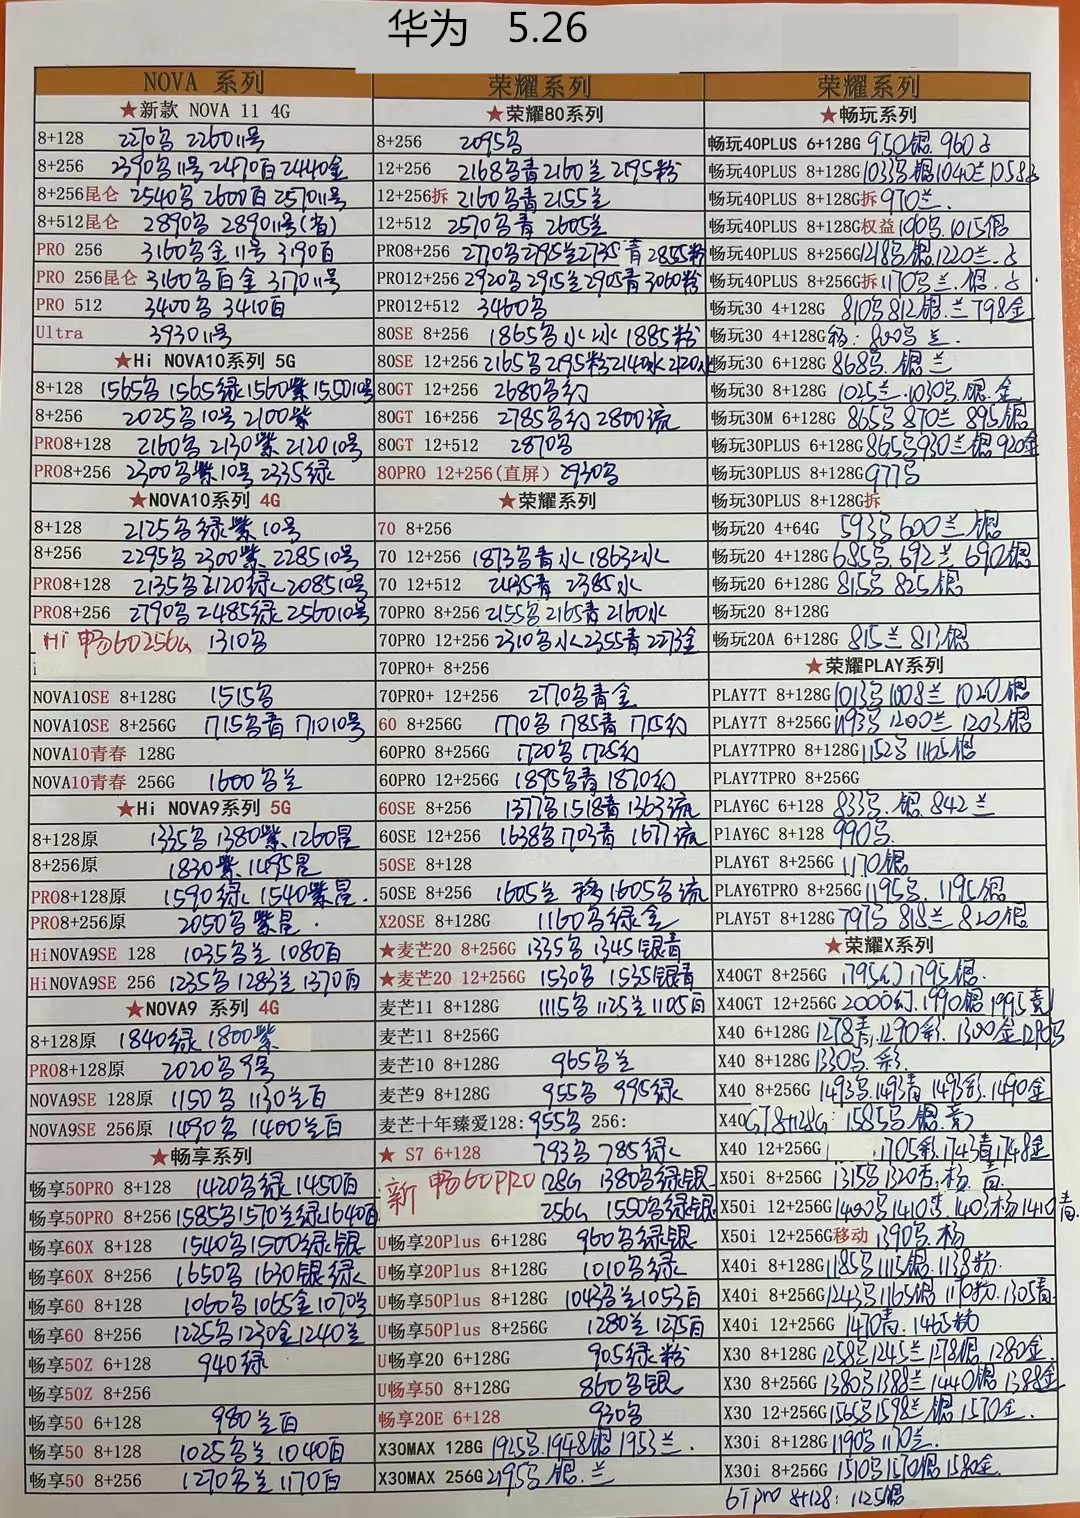 华为 5.26
NOVA 系列
★新款 NOVA 11 4G
8+128 2270鸟 2260 11号
8+256 2390鸟11号 2470百 2440金
8+256昆仑 2540鸟 2600百 2570 11号
8+512昆仑 2890鸟 2890 11号(省)
PRO 256 3160鸟金 11号 3190百
PRO 256昆仑 3160鸟百金 3170 11号
PRO 512 3400鸟 3410百
Ultra 3930 11号
★Hi NOVA10系列 5G
8+128 1565鸟 1565绿 1560紫 1550 10号
8+256 2025鸟10号 2100紫
PRO8+128 2160鸟 2130紫 2120 10号
PRO8+256 2300鸟紫10号 2335绿
★NOVA10系列 4G
8+128 2125鸟绿紫10号
8+256 2295鸟 2300紫 2285 10号
PRO8+128 2135鸟 2120绿 2085 10号
PRO8+256 2790鸟 2485绿 2560 10号
Hi 畅60 256G 1310鸟
NOVA10SE 8+128G 1515鸟
NOVA10SE 8+256G 1715鸟青 1710 10号
NOVA10青春 128G
NOVA10青春 256G 1600鸟兰
★Hi NOVA9系列 5G
8+128原 1335鸟 1380紫 1260星
8+256原 1830紫 1495星
PRO8+128原 1590绿 1540紫星
PRO8+256原 2050鸟紫星
HiNOVA9SE 128 1035鸟兰 1080百
HiNOVA9SE 256 1235鸟 1283兰 1370百
★NOVA9 系列 4G
8+128原 1840绿 1800紫
PRO8+128原 2020鸟9号
NOVA9SE 128原 1150鸟 1130兰百
NOVA9SE 256原 1490鸟 1400兰百
★畅享系列
畅享50PRO 8+128 1420鸟绿 1450百
畅享50PRO 8+256 1585鸟1570兰绿1640百
畅享60X 8+128 1540鸟1500绿银
畅享60X 8+256 1650鸟 1630银绿
畅享60 8+128 1060鸟1065金1070兰
畅享60 8+256 1225鸟1230金1240兰
畅享50Z 6+128 940绿
畅享50Z 8+256
畅享50 6+128 980兰百
畅享50 8+128 1025鸟兰 1040百
畅享50 8+256 1270鸟兰 1170百
荣耀系列
★荣耀80系列
8+256 2095鸟
12+256 2168鸟青 2160兰 2195粉
12+256拆 2160鸟青 2155兰
12+512 2570鸟青 2605兰
PRO8+256 2770鸟2795兰2735青 2855粉
PRO12+256 2920鸟 2915兰 2905青 3060粉
PRO12+512 3460鸟
80SE 8+256 1865鸟水 1885粉
80SE 12+256 2165鸟2195粉2140水
80GT 12+256 2680鸟幻
80GT 16+256 2785鸟幻 2800流
80GT 12+512 2870鸟
80PRO 12+256(直屏) 2930鸟
★荣耀系列
70 8+256
70 12+256 1873鸟青水 1863冰
70 12+512 2435青 2385水
70PRO 8+256 2155鸟 2165青 2160水
70PRO 12+256 2310鸟水 2355青 2273金
70PRO+ 8+256
70PRO+ 12+256 2770鸟青金
60 8+256G 1770鸟 1785青 1715幻
60PRO 8+256G 1720鸟 1725幻
60PRO 12+256G 1895鸟青 1870幻
60SE 8+256 1377鸟1518青 1363流
60SE 12+256 1638鸟1703青 1677流
50SE 8+128
50SE 8+256 1605兰 移1605鸟流
X20SE 8+128G 1160鸟绿金
★麦芒20 8+256G 1335鸟 1345银青
★麦芒20 12+256G 1530鸟 1535银青
麦芒11 8+128G 1115鸟 1125兰 1105百
麦芒11 8+256G
麦芒10 8+128G 965鸟兰
麦芒9 8+128G 955鸟 995绿
麦芒十年臻爱128: 955鸟 256:
★ S7 6+128 793鸟 785绿
新 畅60PRO 128G 1380鸟绿银
256G 1550鸟绿银
U畅享20Plus 6+128G 960鸟绿银
U畅享20Plus 8+128G 1010鸟绿
U畅享50Plus 8+128G 1043鸟兰1053百
U畅享50Plus 8+256G 1280兰 1275百
U畅享20 6+128G 905绿粉
U畅享50 8+128G 860鸟银
畅享20E 6+128 930鸟
X30MAX 128G 1925鸟.1948银 1953兰.
X30MAX 256G 2195鸟 银.兰
荣耀系列
★畅玩系列
畅玩40PLUS 6+128G 950银 960
畅玩40PLUS 8+128G 1033鸟银1040兰1058
畅玩40PLUS 8+128G拆 970兰.
畅玩40PLUS 8+128G权益 1015银
畅玩40PLUS 8+256G 1218鸟银1220兰.
畅玩40PLUS 8+256G拆 1170鸟兰.银.
畅玩30 4+128G 810鸟 812银.兰 798金
畅玩30 4+128G移: 800鸟兰.
畅玩30 6+128G 868鸟.银兰
畅玩30 8+128G 1025兰.1030鸟.银.金
畅玩30M 6+128G 865鸟 870兰 895银
畅玩30PLUS 6+128G 865鸟930兰银 920金
畅玩30PLUS 8+128G 977鸟
畅玩30PLUS 8+128G拆
畅玩20 4+64G 593鸟 600兰.银
畅玩20 4+128G 685鸟.692兰 690银
畅玩20 6+128G 815鸟 825银
畅玩20 8+128G
畅玩20A 6+128G 815兰 813银
★荣耀PLAY系列
PLAY7T 8+128G 1013鸟1008兰 1020银
PLAY7T 8+256G 1193鸟 1200兰 1203银
PLAY7TPRO 8+128G 1152鸟 1165银
PLAY7TPRO 8+256G
PLAY6C 6+128 833鸟.银 842兰
PlAY6C 8+128 990鸟.
PLAY6T 8+256G 1170银
PLAY6TPRO 8+256G 1195鸟. 1195银
PLAY5T 8+128G 797鸟 818兰 820银
★荣耀X系列
X40GT 8+256G 1795幻 1795银.
X40GT 12+256G 2000幻.1990银 1995竞
X40 6+128G 1278青.1290彩. 1300金1290鸟
X40 8+128G 1330鸟.彩
X40 8+256G 1493鸟1493青 1493彩.1490金
X40GT8+128G: 1585鸟.银.竞
X40 12+256G 1705彩.1743青1748金
X50i 8+256G 1315鸟1320杏.杨.青
X50i 12+256G 1400鸟1410杏.1403杨1410青.
X50i 12+256G移动 1390鸟.杨
X40i 8+128G 1185鸟1115银.1138粉.
X40i 8+256G 1243鸟1165银 1170粉.1305青.
X40i 12+256G 1470青. 1465粉
X30 8+128G 1258鸟1245兰1278银 1280金.
X30 8+256G 1380鸟1388兰1440银 1388金
X30 12+256G 1565鸟1598兰 银 1570金.
X30i 8+128G 1190鸟1170兰.
X30i 8+256G 1510鸟1570银 1580金.
6Tpro 8+128: 1125银